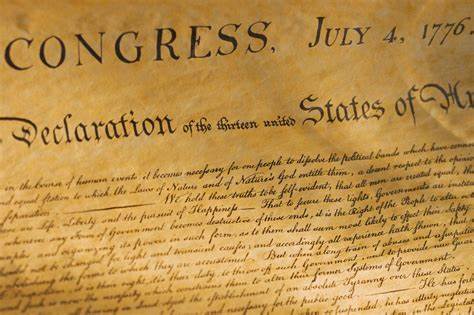 CONGRESS, JULY 4, 1776.
Declaration of the thirteen united States of Am
in the Course of human events it becomes necessary for one people to dissolve the political bands which have
equal station to which the Laws of Nature and of Nature's God entitle them, a decent respect to the
separation. We hold these truths to be self-evident, that all men are created equal,
are Life, Liberty and the pursuit of Happiness — That to secure these rights, Governments are
any Form of Government becomes destructive of these ends, it is the Right of the People to alter
and organizing its powers in such form, as to them shall seem most likely to effect their Safety
for light and transient causes; and accordingly all experience hath shewn,
abolishing the forms to which they are accustomed. But when a long train of abuses and
it is their duty, to throw off such Government, and to provide new
constrains them to alter their former Systems of Government.
the establishment of an absolute Tyranny over these States.
for the public good. He has
so suspended, he has utterly
in the